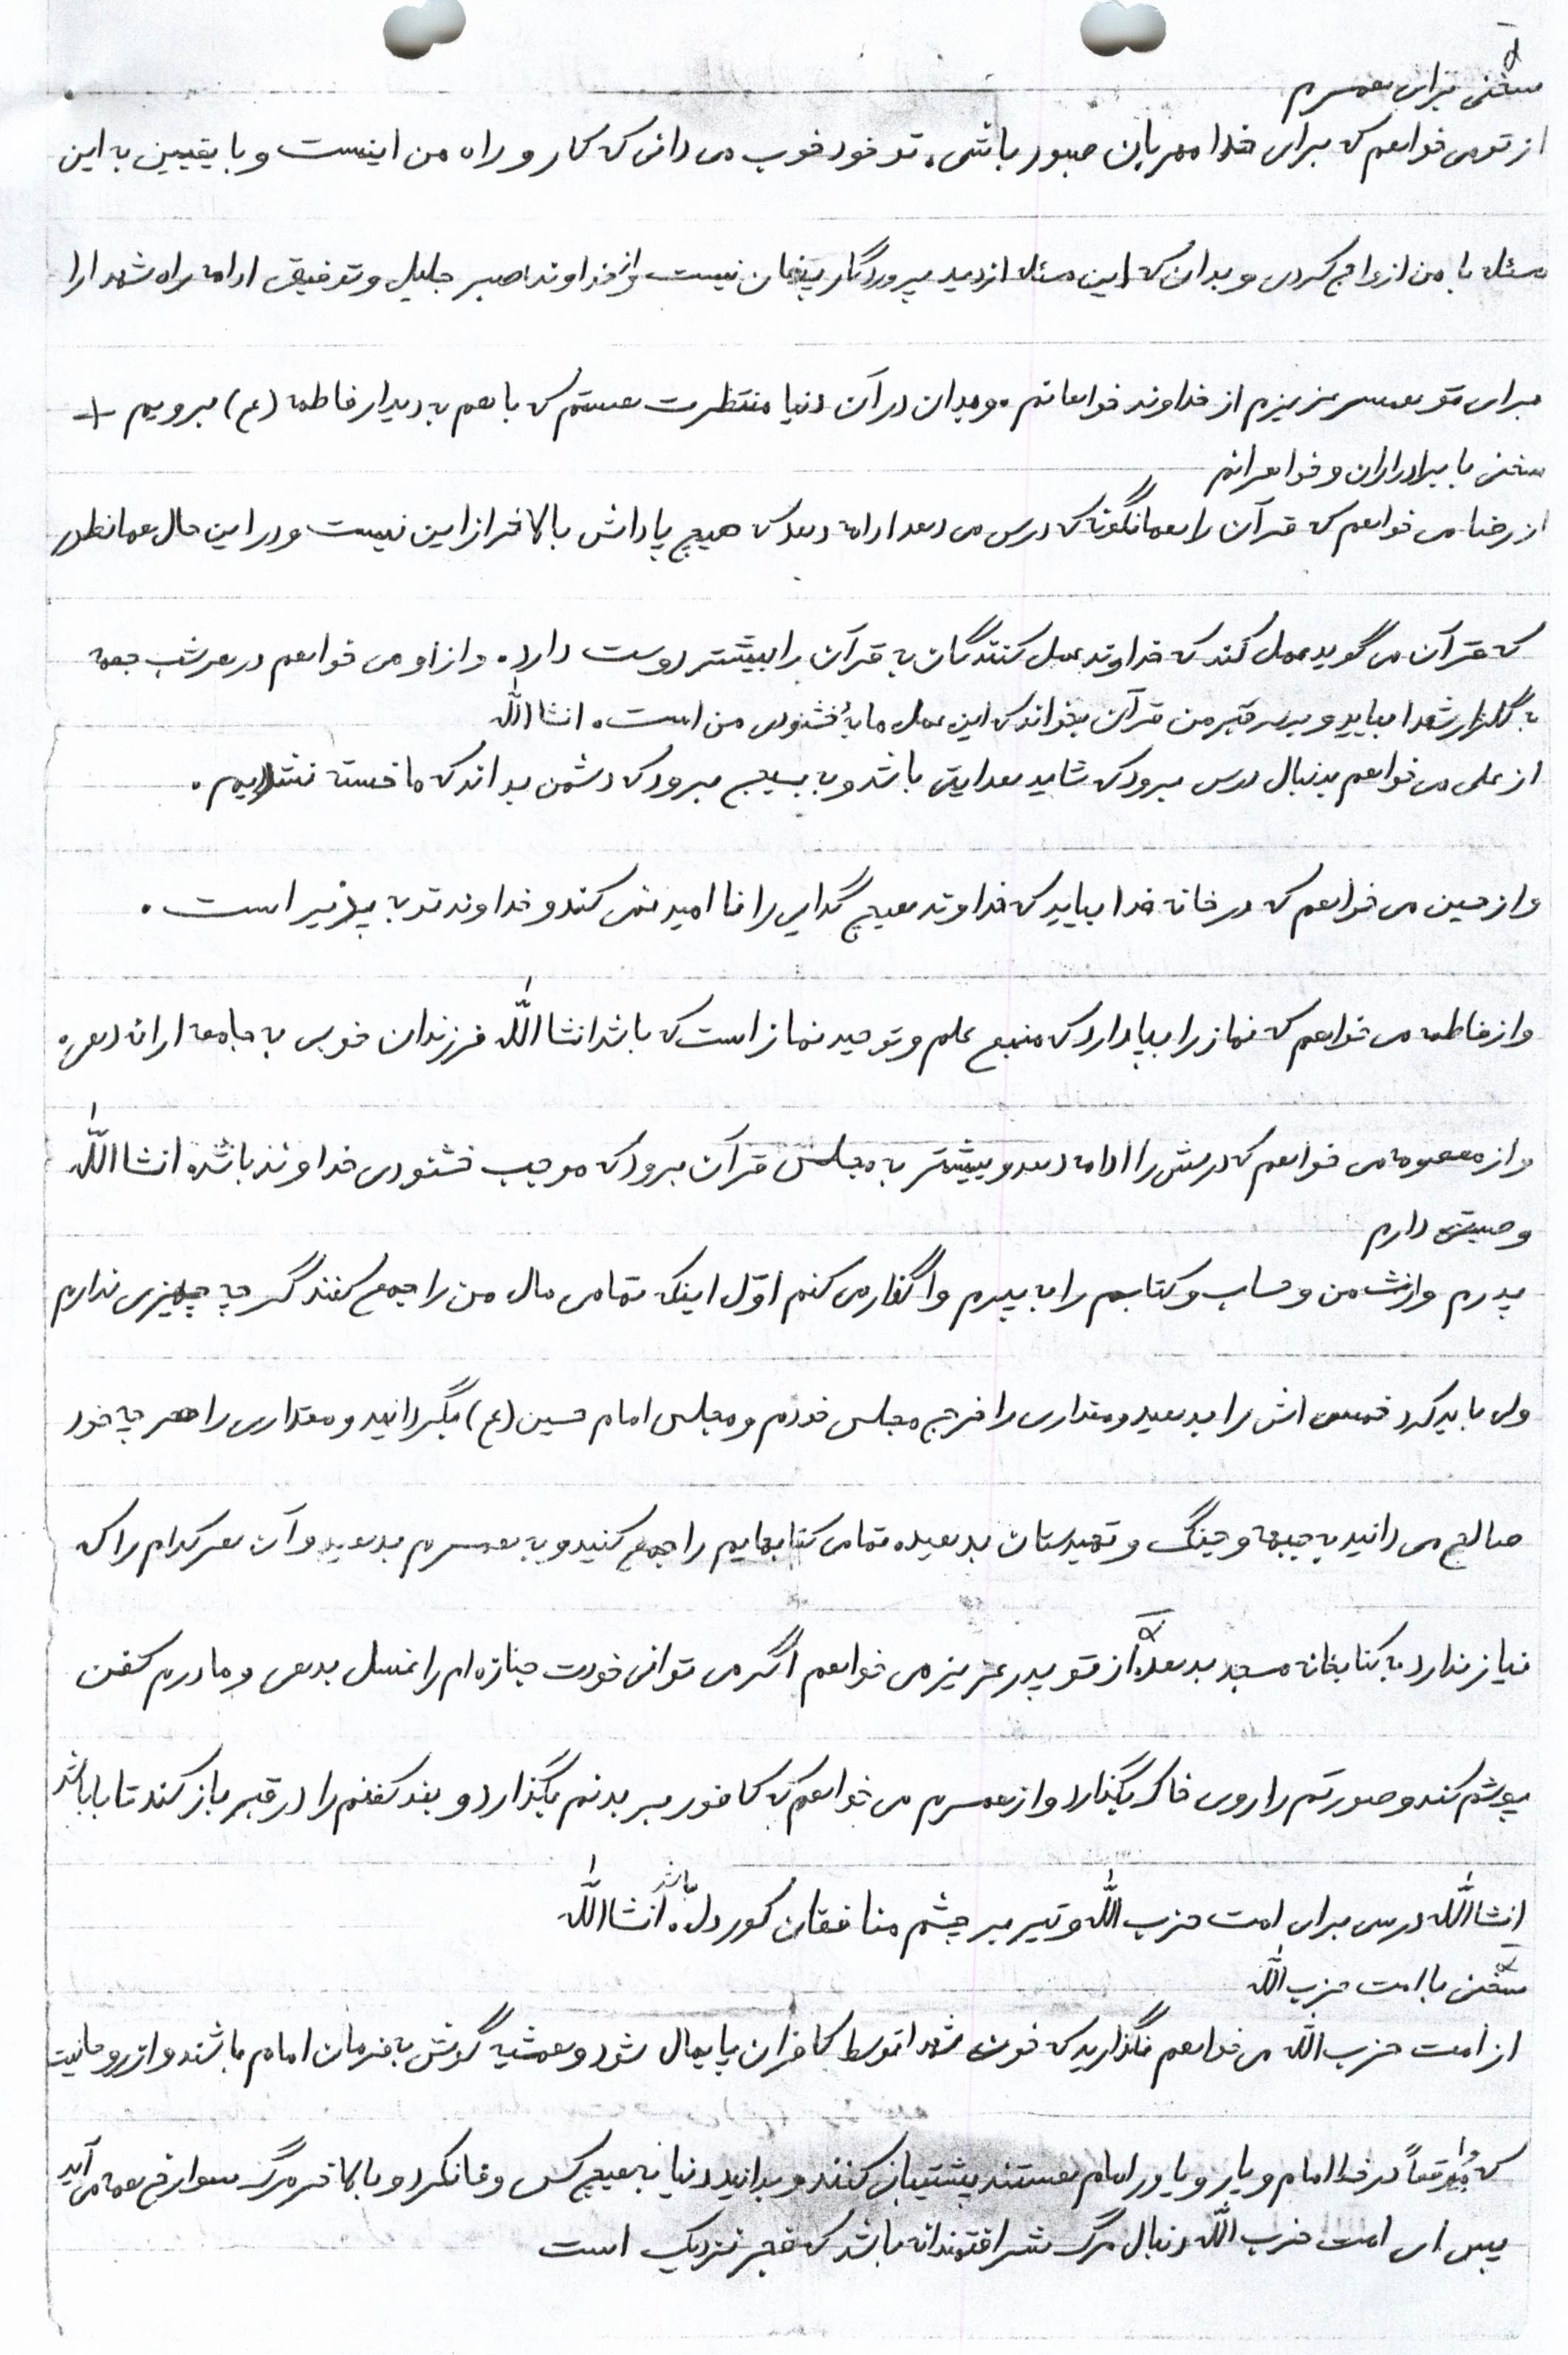 سخنی برای همسرم
از تو می خواهم که برای خدا مهربان صبور باشی. تو خود خوب می دانی که کار و راه من اینست و با یقیین به این
مسئله با من ازدواج کردی و بدان که این مسئله از دید پروردگار پنهان نیست و از خداوند صبر جلیل و توفیق ادامه راه شهدا را
برای تو همسر عزیزم از خداوند خواهانم. و بدان در آن دنیا منتظرت هستم که با هم به دیدار فاطمه (ع) برویم +
سخنی با برادران و خواهرانم
از رضا می خواهم که قرآن را همانگونه که درس می دهد ادامه دهد که هیچ پاداش بالاخر از این نیست و در این حال همانطور
که قرآن می گوید عمل کند که خداوند عمل کنندگان به قرآن را بیشتر دوست دارد. و از او می خواهم در هر شب جمعه
به گلزار شهدا بیاید و بر سر قبر من قرآن بخواند که این عمل مایهٔ خشنودی من است. انشاالله
از علی می خواهم بدنبال درس برود که شاید هدایتی باشد و به بسیج برود که دشمن بداند که ما خسته نشدیم.
و از حسین می خواهم که در خانه خدا بیاید که خداوند هیچ گدایی را نا امید نمی کند و خداوند توبه پذیر است.
و از فاطمه می خواهم که نماز را بپا دارد که منبع علم و توحید نماز است که باشد انشاالله فرزندان خوبی به جامعه ارائه دهی
و از معصومه می خواهم که درسش را ادامه دهد و بیشتر به مجلس قرآن برود که موجب خشنودی خداوند باشد. انشاالله
وصیتی دارم
پدرم وارث من و حساب و کتابم را به پدرم واگذار می کنم اوّل اینکه تمامی مال من را جمع کنند گر چه چیزی ندارم
ولی باید کرد خمس اش را بدهید و مقداری را خرج مجلس خودم و مجلس امام حسین (ع) بگردانید و مقداری را هر چه خود
صالح می دانید به جبهه و جنگ و تهیدستان بدهید. تمامی کتابهایم را جمع کنید و به همسرم بدهید و آن هر کدام را که
نیاز ندارد به کتابخانه مسجد بدهد. از تو پدر عزیز می خواهم اگر می توانی خودت جنازه ام را غسل بدهی و مادرم کفن
پوشم کند و صورتم را روی خاک بگذارد و از همسرم می خواهم که کافور بر بدنم بگذارد و بند کفنم را در قبر باز کند تا
انشاالله درسی برای امت حزب الله و تیر بر چشم منافقان کور دل باشد. انشاالله
سخنی با امت حزب الله
از امت حزب الله می خواهم نگذارید که خون شهدا توسط کافران پایمال شود و همشیه گوش به فرمان امام باشند و از روحانیت
که واقعاً در خط امام و یار و یاور امام هستند پشتیبانی کنند و بدانید دنیا به هیچ کس وفا نکرد و بالاخره مرگ سراغ همه می آید
پس ای امت حزب الله دنبال مرگ شرافتمندانه باشد که فجر نزدیک است